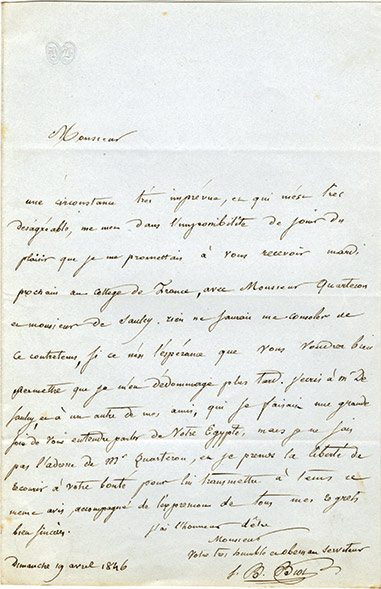 Monsieur
une circonstance très imprévue, et qui m'est très
désagréable, me met dans l'impossibilité de jouir du
plaisir que je me promettais à vous recevoir mardi
prochain au collège de France, avec Monsieur Quarteron
et monsieur de Saulcy. rien ne pourrait me consoler de
ce contretems, si ce n'est l'espérance que vous voudrez bien
permettre que je m'en dédommage plus tard. j'écris à Mr De
Saulcy, et à un autre de mes amis, qui se faisait une grande
joie de vous entendre parler de votre Egypte, mais je ne sais
pas l'adresse de Mr Quarteron, et je prends la liberté de
recourir à votre bonté pour lui transmettre à tems ce
même avis, accompagné de l'expression de tous mes regrets
bien sincères.
j'ai l'honneur d'être
Monsieur
Votre très humble et obéissant serviteur
J. B. Biot
Dimanche 19 avril 1846